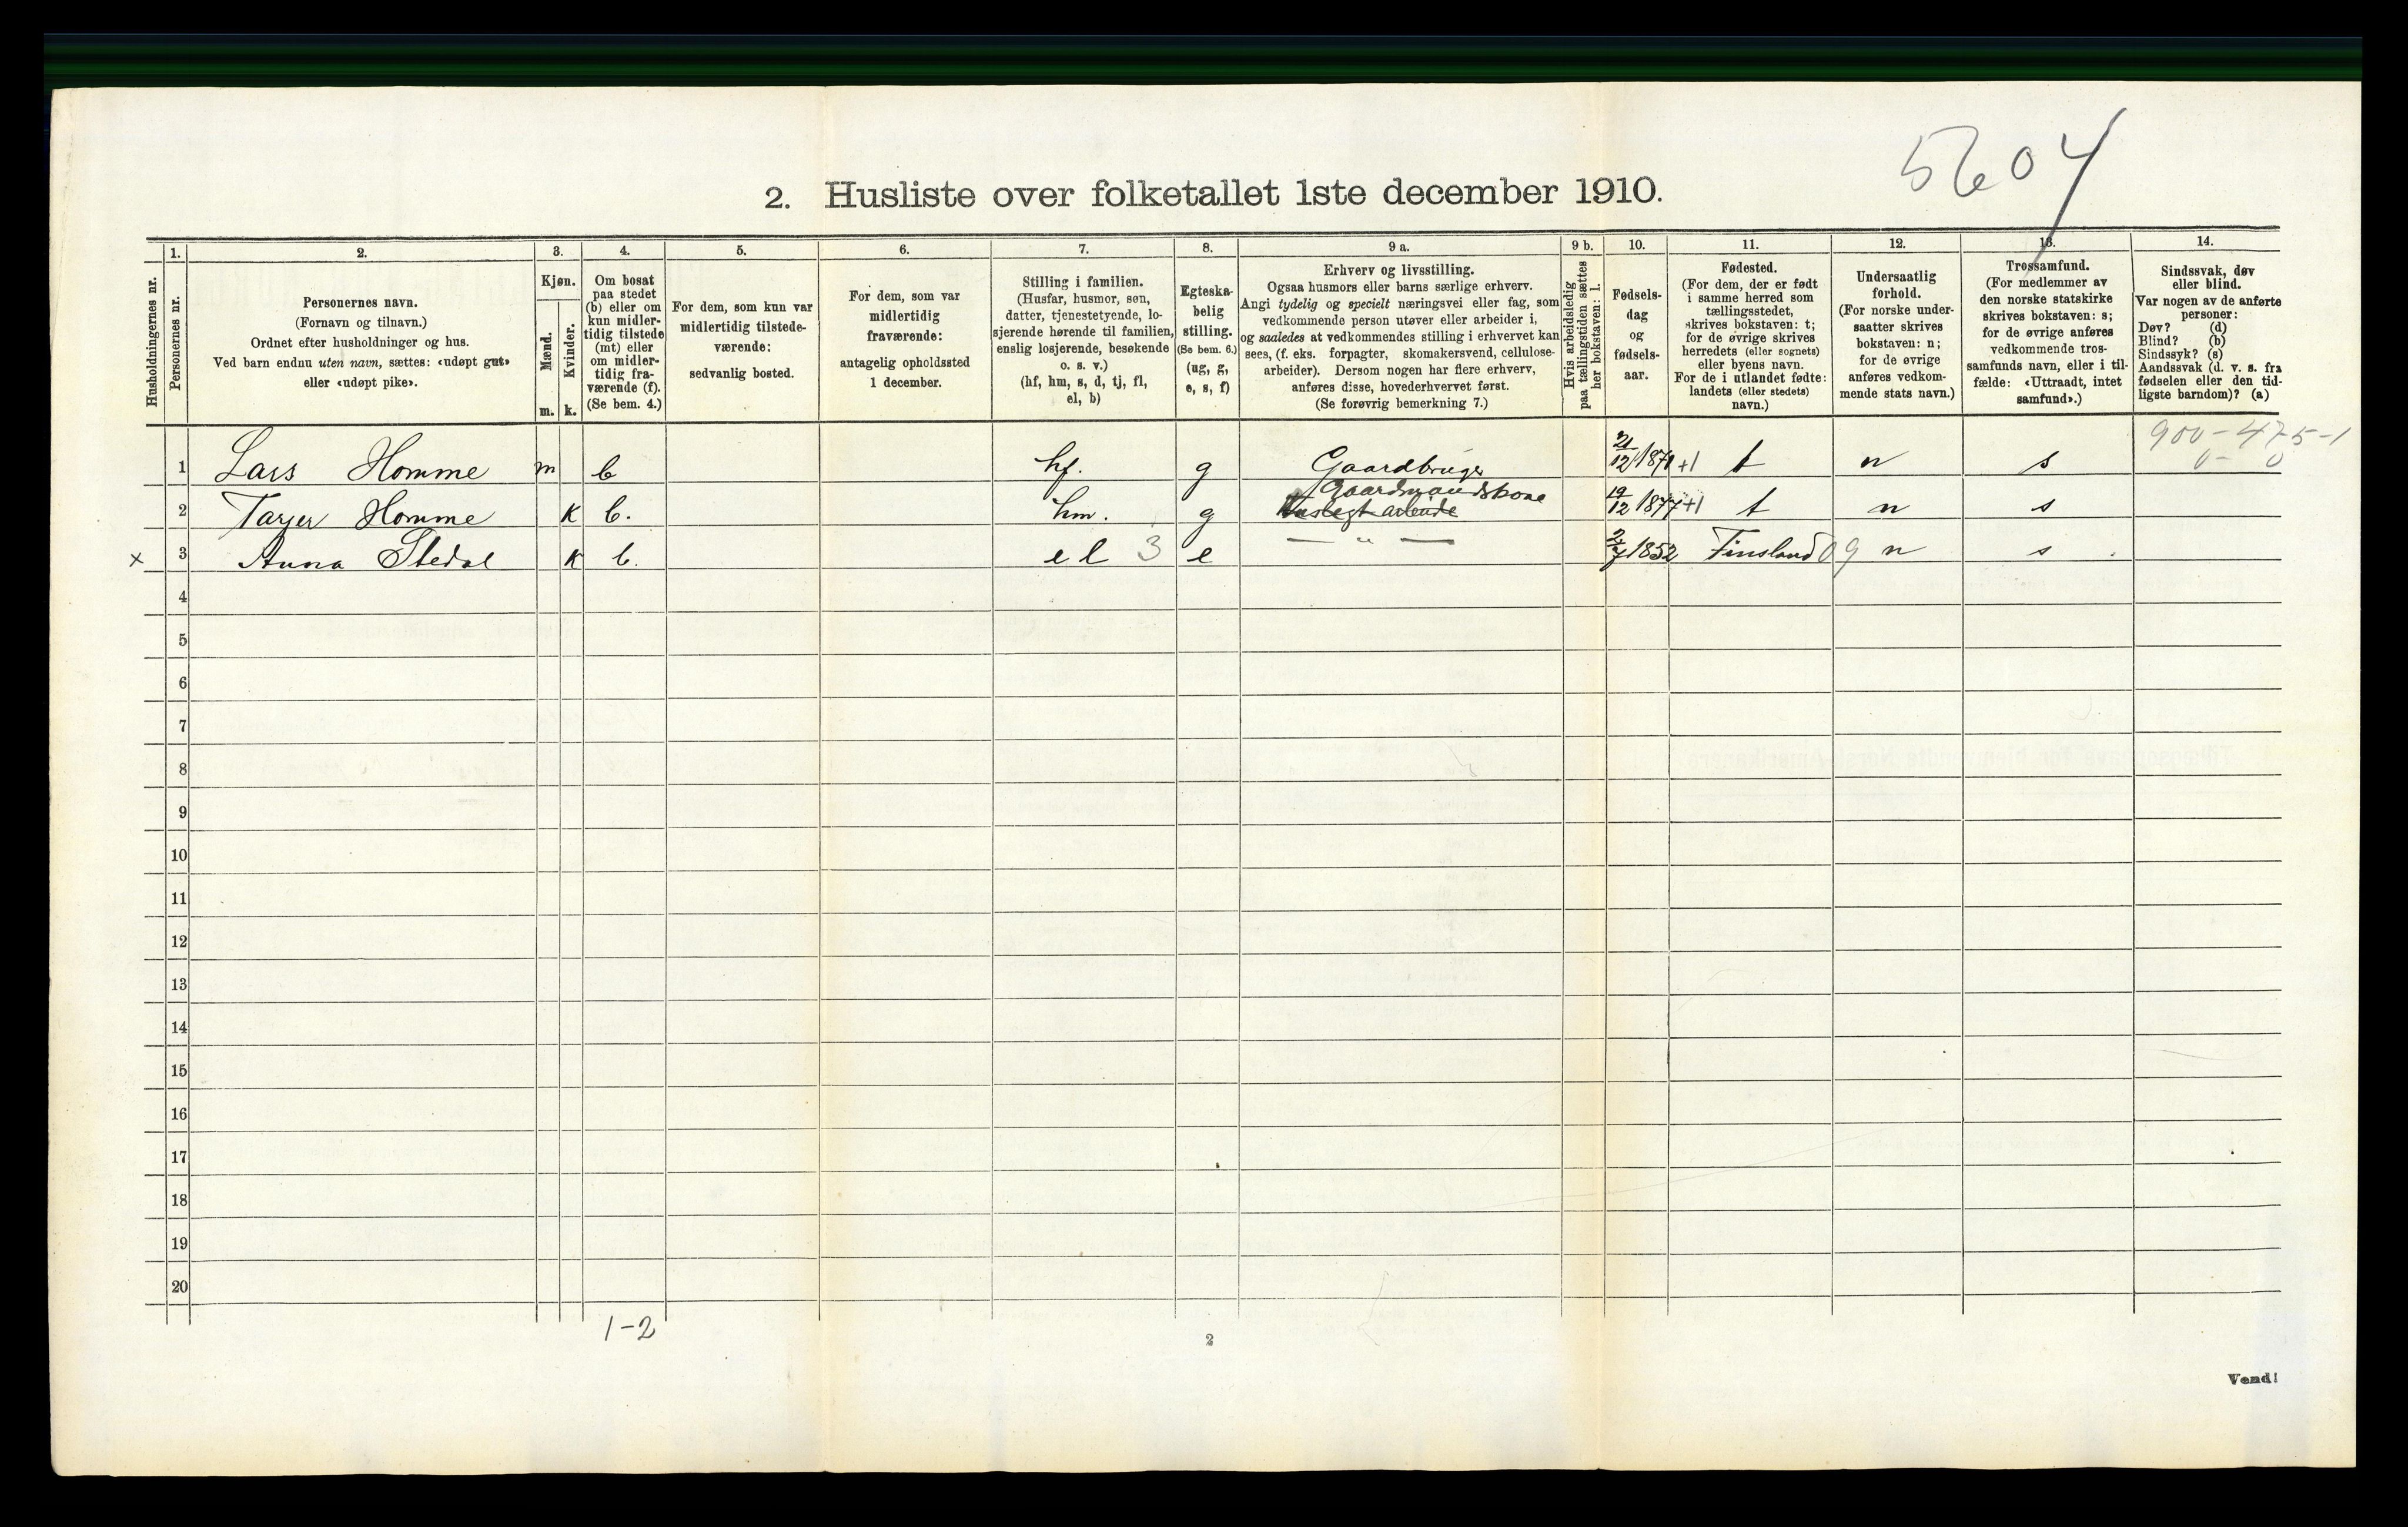 5604
2. Husliste over folketallet 1ste december 1910.
Husholdningernes nr.
1.
Personernes nr.
2.
Personernes navn.
(Fornavn og tilnavn.)
Ordnet efter husholdninger og hus.
Ved barn endnu uten navn, sættes: «udøpt gut»
eller «udøpt pike».
3.
Kjøn.
Mænd.
m.
Kvinder.
k.
4.
Om bosat
paa stedet
(b) eller om
kun midler-
tidig tilstede
(mt) eller
om midler-
tidig fra-
værende (f).
(Se bem. 4.)
5.
For dem, som kun var
midlertidig tilstede-
værende:
sedvanlig bosted.
6.
For dem, som var
midlertidig
fraværende:
antagelig opholdssted
1 december.
7.
Stilling i familien.
(Husfar, husmor, søn,
datter, tjenestetyende, lo-
sjerende hørende til familien,
enslig losjerende, besøkende
o. s. v.)
(hf, hm, s, d, tj, fl,
el, b)
8.
Egteska-
belig
stilling.
(Se bem. 6.)
(ug, g,
e, s, f)
9 a.
Erhverv og livsstilling.
Ogsaa husmors eller barns særlige erhverv.
Angi tydelig og specielt næringsvei eller fag, som
vedkommende person utøver eller arbeider i,
og saaledes at vedkommendes stilling i erhvervet kan
sees, (f. eks. forpagter, skomakersvend, cellulose-
arbeider). Dersom nogen har flere erhverv,
anføres disse, hovederhvervet først.
(Se forøvrig bemerkning 7.)
9 b.
Hvis arbeidsledig
paa tællingstiden sættes
her bokstaven: l.
10.
Fødsels-
dag
og
fødsels-
aar.
11.
Fødested.
(For dem, der er født
i samme herred som
tællingsstedet,
skrives bokstaven: t;
for de øvrige skrives
herredets (eller sognets)
eller byens navn.
For de i utlandet fødte:
landets (eller stedets)
navn.)
12.
Undersaatlig
forhold.
(For norske under-
saatter skrives
bokstaven: n;
for de øvrige
anføres vedkom-
mende stats navn.)
13.
Trossamfund.
(For medlemmer av
den norske statskirke
skrives bokstaven: s;
for de øvrige anføres
vedkommende tros-
samfunds navn, eller i til-
fælde: «Uttraadt, intet
samfund».)
14.
Sindssvak, døv
eller blind.
Var nogen av de anførte
personer:
Døv? (d)
Blind? (b)
Sindssyk? (s)
Aandssvak (d. v. s. fra
fødselen eller den tid-
ligste barndom)? (a)
900-475-1
0- 0
1 Lars Homme m b hf. g Gaardbruger 21/12 1871 +1 t n s
2 Tarjer Homme k b. hm. g Gaardmandskone 19/12 1877 +1 t n s
x 3 Anna Stedal k b. el 3 e — " — 2/7 1852 Finsland 09 n s
4
5
6
7
8
9
10
11
12
13
14
15
16
17
18
19
20
1-2
2
Vend!